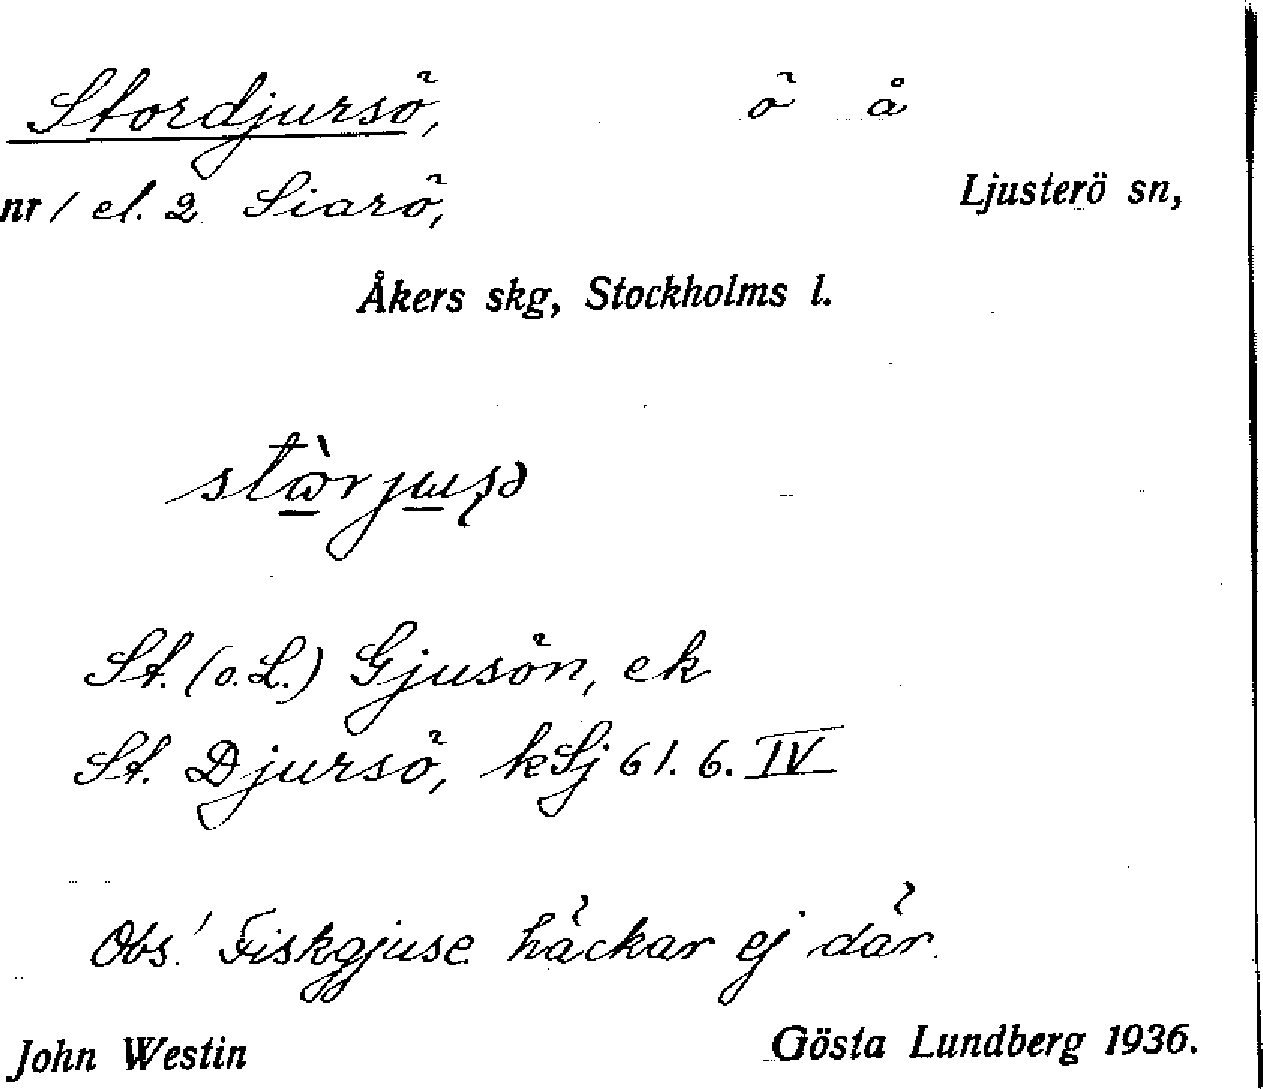 Stordjursö, ö å
nr 1 el. 2 Siarö, Ljusterö sn,
Åkers skg, Stockholms l.
St. (o. L.) Gjusön, ek
St. Djursö, kSj 61. 6. IV
Obs! Fiskgjuse häckar ej där.
John Westin Gösta Lundberg 1936.